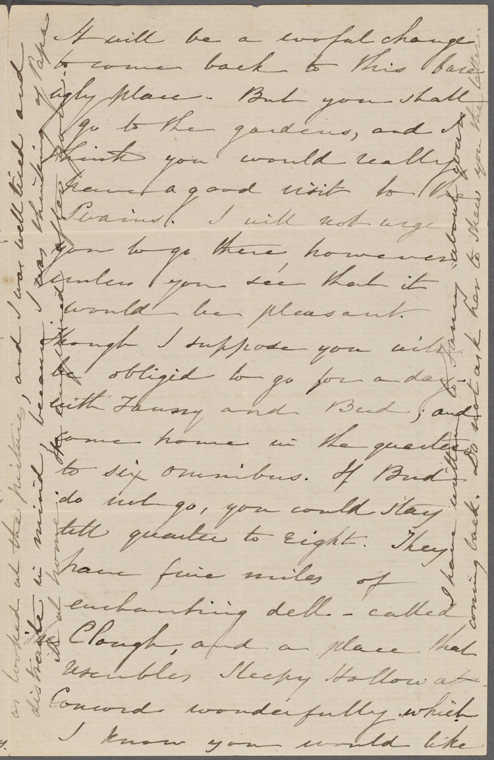 It will be a woful change
to come back to this bare
ugly place. But you shall
go to the gardens, and I
think you would really
have a good visit to the
Swains. I will not urge
you to go there, however
unless you see that it
would be pleasant.
Though I suppose you will
be obligid to go for a day
with Fanny and Bud; and
come home in the quarter
to six omnibus. If Bud
do not go, you could stay
till quarter to Eight. They
have five miles of
enchanting dell - called
Clough, and a place that
resembles Sleepy Hollow at
Concord wonderfully which
I know you would like
as looked at the pictures, and I was well tired and
distraite in mind, because I was thinking of Papa
at home
I have written to Fanny about your
coming back. Do not ask her to show you the letter.